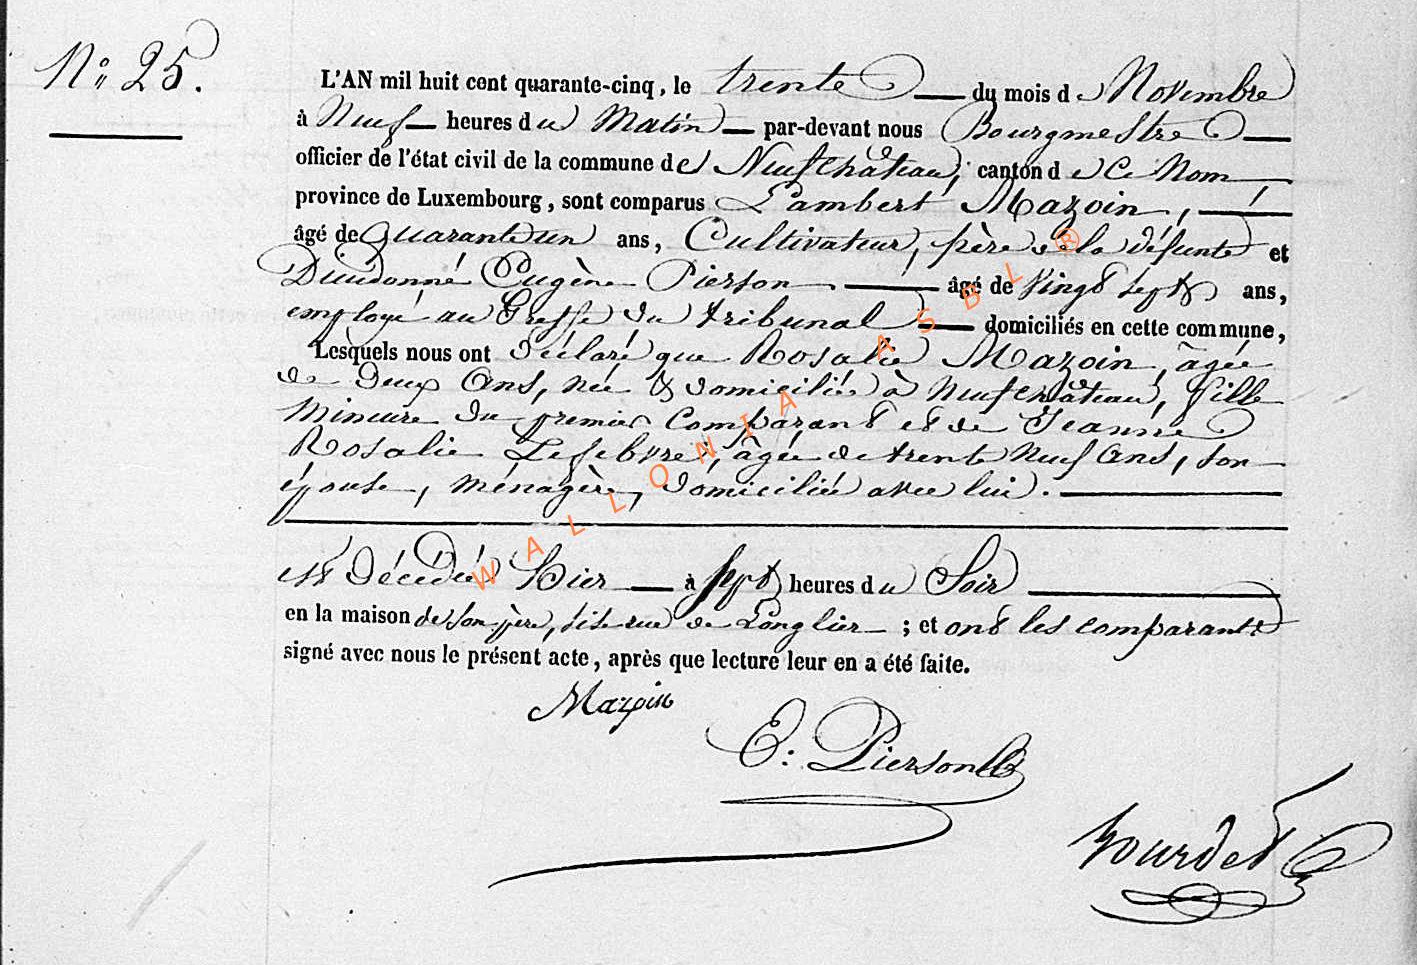 N° 25.
L'AN mil huit cent quarante-cinq, le trente du mois de Novembre
à Neuf heures du Matin par-devant nous Bourgmestre
officier de l'état civil de la commune de Neufchâteau, canton de Ce Nom,
province de Luxembourg, sont comparus Lambert Mazoin,
âgé de quarante un ans, Cultivateur, père de la défunte et
Dieudonné Eugène Pierson âgé de vingt sept ans,
employé au Greffe du tribunal domiciliés en cette commune,
Lesquels nous ont déclaré que Rosalie Mazoin, âgée
de deux ans, née & domiciliée à Neufchâteau, fille
mineure du premier Comparant et de Jeanne
Rosalie Lefebvre, âgée de trente neuf ans, son
épouse, ménagère, domiciliée avec lui.
est Décédée Hier à sept heures du Soir
en la maison de son père, sise rue de Longlier ; et ont les comparants
signé avec nous le présent acte, après que lecture leur en a été faite.
Mazoin
E. Pierson
Bourdet
WALLONIA ASBL ®